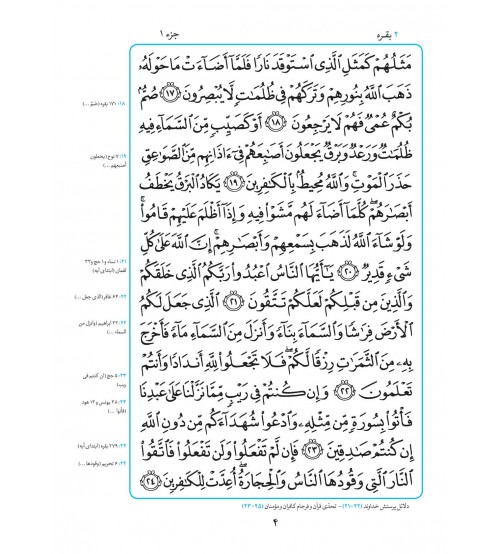 ۲ بقره
جزء ۱
مَثَلُهُمْ كَمَثَلِ الَّذِي اسْتَوْقَدَ نَارًا فَلَمَّا أَضَاءَتْ مَا حَوْلَهُ
ذَهَبَ اللَّهُ بِنُورِهِمْ وَتَرَكَهُمْ فِي ظُلُمَاتٍ لَا يُبْصِرُونَ ﴿۱۷﴾ صُمٌّ
بُكْمٌ عُمْيٌ فَهُمْ لَا يَرْجِعُونَ ﴿۱۸﴾ أَوْ كَصَيِّبٍ مِنَ السَّمَاءِ فِيهِ
ظُلُمَاتٌ وَرَعْدٌ وَبَرْقٌ يَجْعَلُونَ أَصَابِعَهُمْ فِي آذَانِهِمْ مِنَ الصَّوَاعِقِ
حَذَرَ الْمَوْتِ وَاللَّهُ مُحِيطٌ بِالْكَافِرِينَ ﴿۱۹﴾ يَكَادُ الْبَرْقُ يَخْطَفُ
أَبْصَارَهُمْ كُلَّمَا أَضَاءَ لَهُمْ مَشَوْا فِيهِ وَإِذَا أَظْلَمَ عَلَيْهِمْ قَامُوا
وَلَوْ شَاءَ اللَّهُ لَذَهَبَ بِسَمْعِهِمْ وَأَبْصَارِهِمْ إِنَّ اللَّهَ عَلَى كُلِّ
شَيْءٍ قَدِيرٌ ﴿۲۰﴾ يَا أَيُّهَا النَّاسُ اعْبُدُوا رَبَّكُمُ الَّذِي خَلَقَكُمْ
وَالَّذِينَ مِنْ قَبْلِكُمْ لَعَلَّكُمْ تَتَّقُونَ ﴿۲۱﴾ الَّذِي جَعَلَ لَكُمُ
الْأَرْضَ فِرَاشًا وَالسَّمَاءَ بِنَاءً وَأَنْزَلَ مِنَ السَّمَاءِ مَاءً فَأَخْرَجَ
بِهِ مِنَ الثَّمَرَاتِ رِزْقًا لَكُمْ فَلَا تَجْعَلُوا لِلَّهِ أَنْدَادًا وَأَنْتُمْ
تَعْلَمُونَ ﴿۲۲﴾ وَإِنْ كُنْتُمْ فِي رَيْبٍ مِمَّا نَزَّلْنَا عَلَى عَبْدِنَا
فَأْتُوا بِسُورَةٍ مِنْ مِثْلِهِ وَادْعُوا شُهَدَاءَكُمْ مِنْ دُونِ اللَّهِ
إِنْ كُنْتُمْ صَادِقِينَ ﴿۲۳﴾ فَإِنْ لَمْ تَفْعَلُوا وَلَنْ تَفْعَلُوا فَاتَّقُوا
النَّارَ الَّتِي وَقُودُهَا النَّاسُ وَالْحِجَارَةُ أُعِدَّتْ لِلْكَافِرِينَ ﴿۲۴﴾
۱۸: ۱۷۱ بقره (صُمّ ...)
۱۹: ۷ نوح (یجعلون
أصبعهم ...)
۲۱: ۱ نساء و ۱ حج و ۳۳
لقمان (ابتدای آیه)
۲۲: ۶۴ غافر (الذی جعل ...)
۲۲: ۳۲ ابراهیم (وانزل من
السماء ...)
۲۳: ۵ حج (ان کنتم فی
ریب)
۲۳: ۳۸ یونس و ۱۳ هود
(فأتوا ...)
۲۴: ۲۷۹ بقره (ابتدای آیه)
۲۴: ۶ تحریم (وقودها ...)
دلائل پرستش خداوند (۲۲-۲۱) - تحدّی قرآن و فرجام کافران و مؤمنان (۲۵-۲۳)
۴